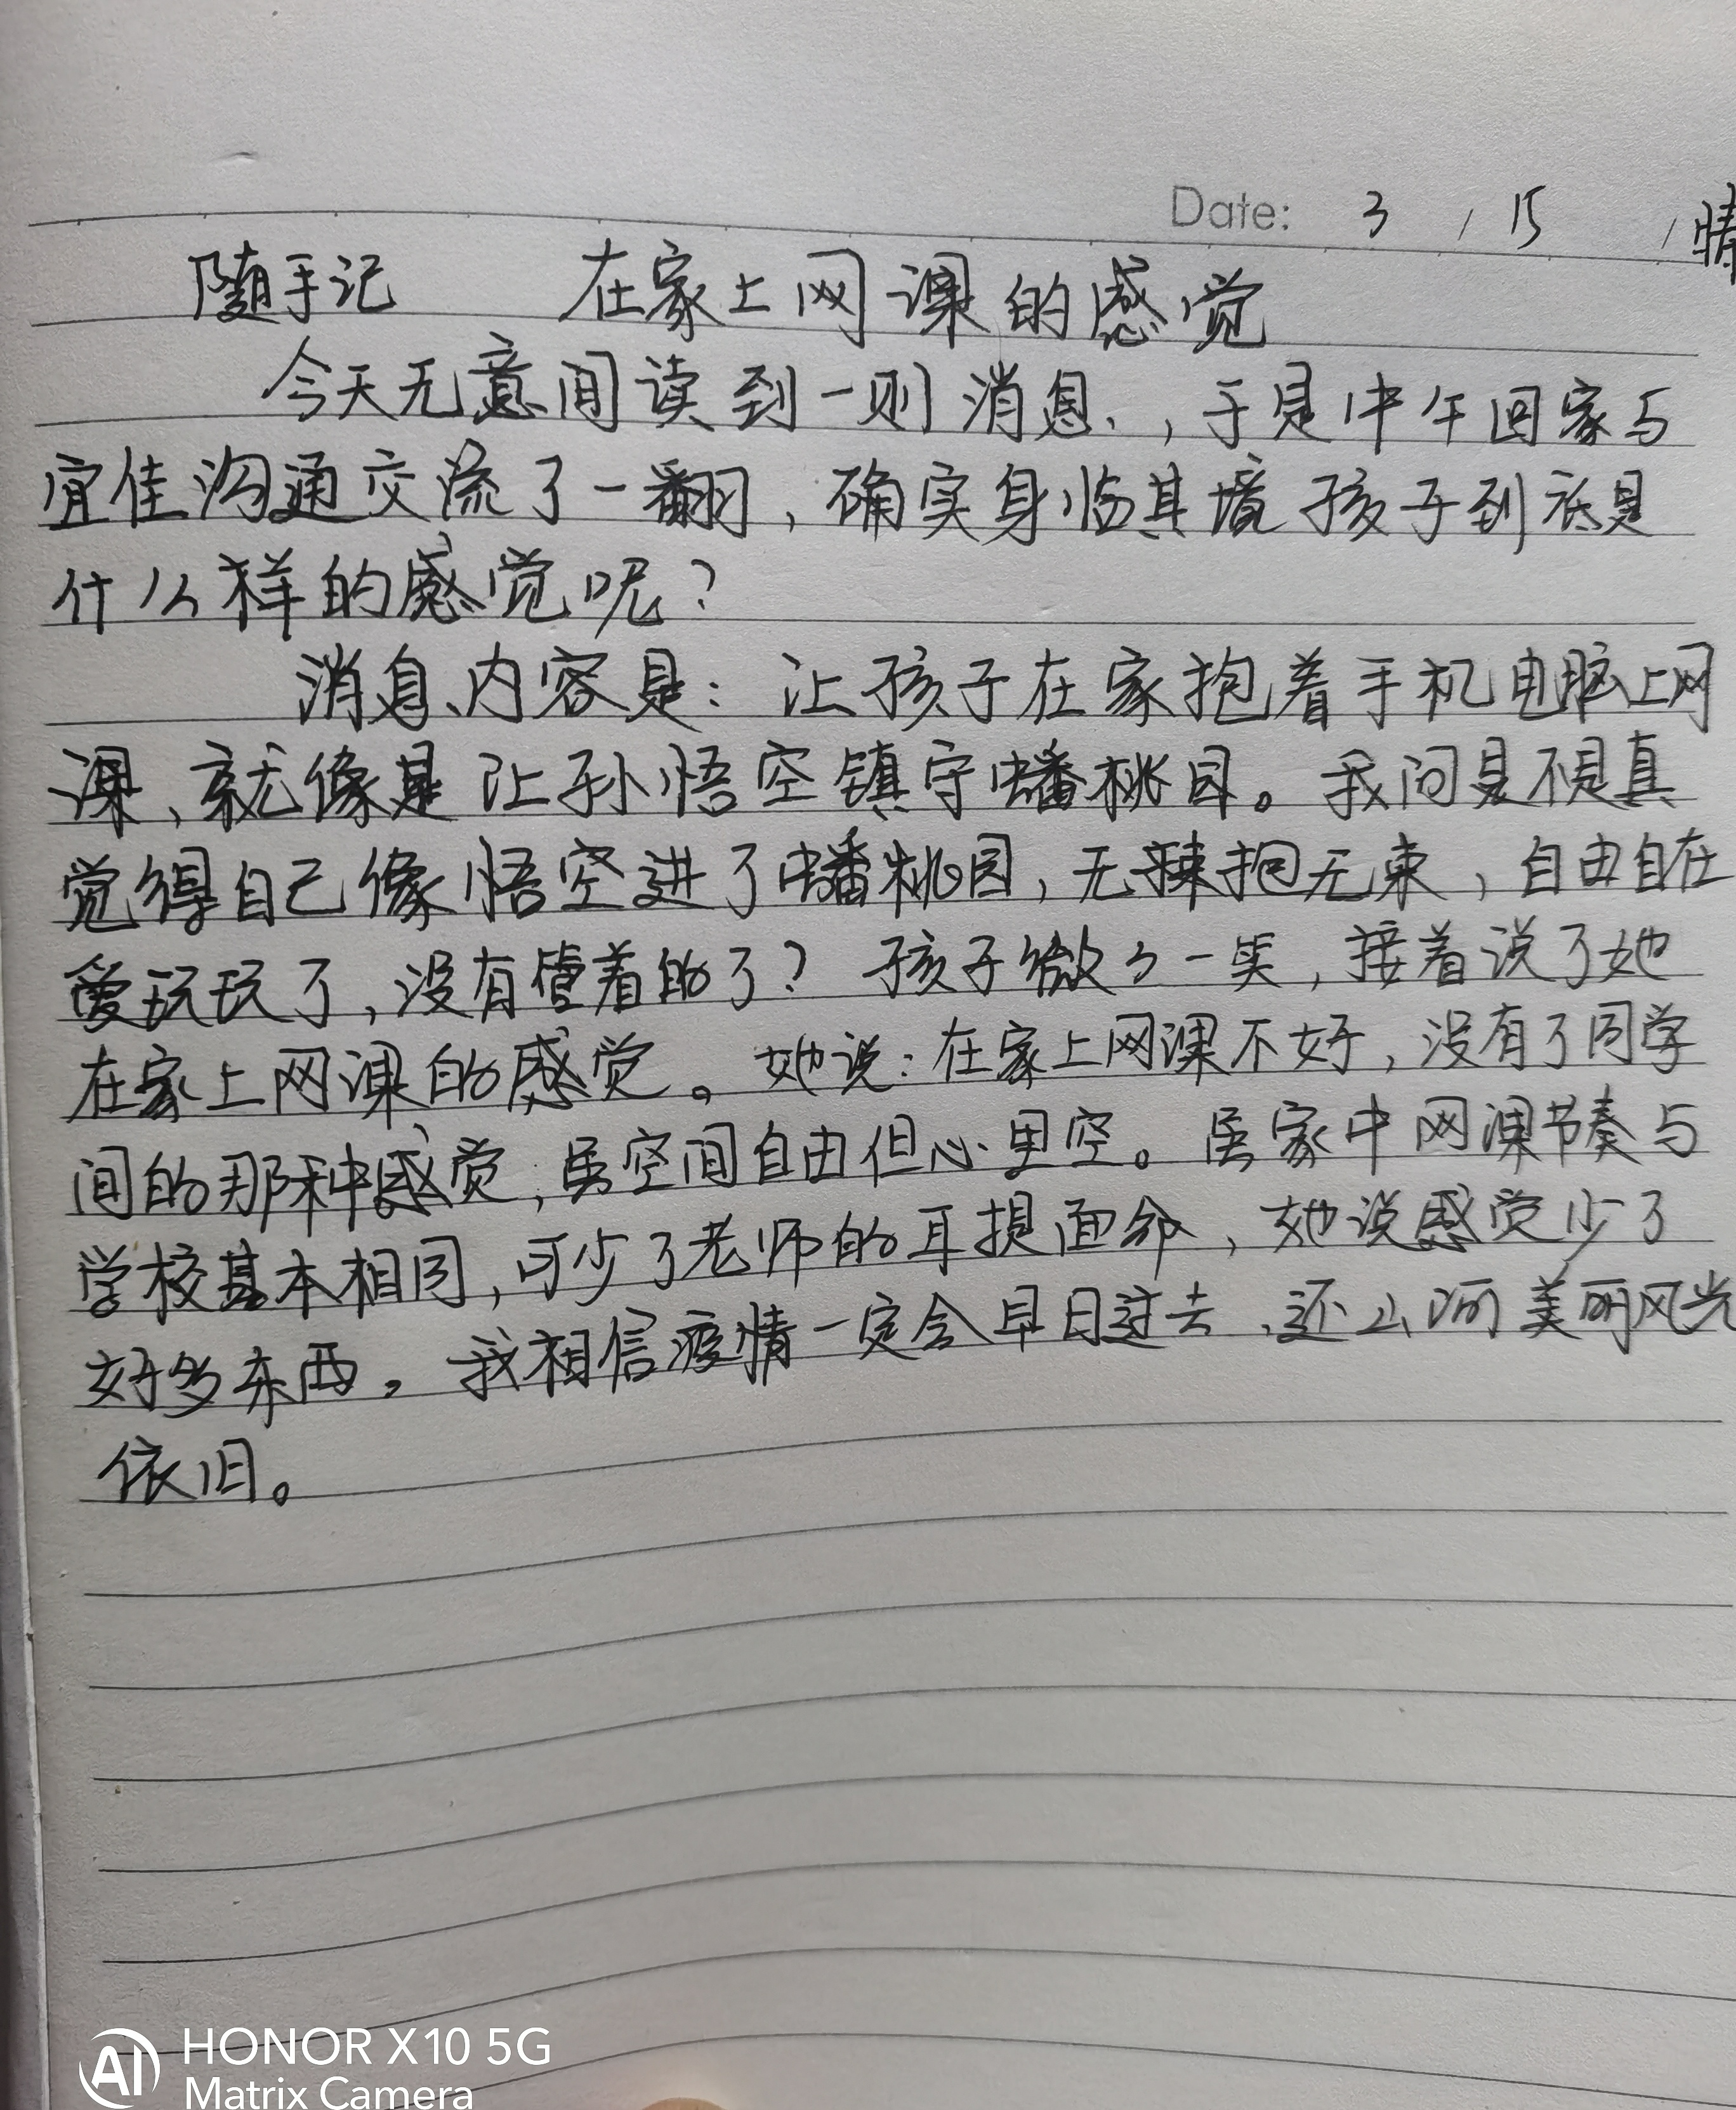 Date: 3 / 15 / 晴
随手记 在家上网课的感觉
今天无意间读到一则消息,于是中午回家与
宜佳沟通交流了一翻,确实身临其境孩子到底是
什么样的感觉呢?
消息内容是:让孩子在家抱着手机电脑上网
课、就像是让孙悟空镇守蟠桃园。我问是不是真
觉得自己像悟空进了蟠桃园,无拘无束,自由自在
爱玩玩了,没有管着的了?孩子微々一笑,接着说了她
在家上网课的感觉。她说:在家上网课不好,没有了同学
间的那种感觉,虽空间自由但心里空。居家中网课节奏与
学校基本相同,可少了老师的耳提面命,她说感觉少了
好多东西。我相信疫情一定会早日过去、还山河美丽风光
依旧。
AI HONOR X10 5G
Matrix Camera